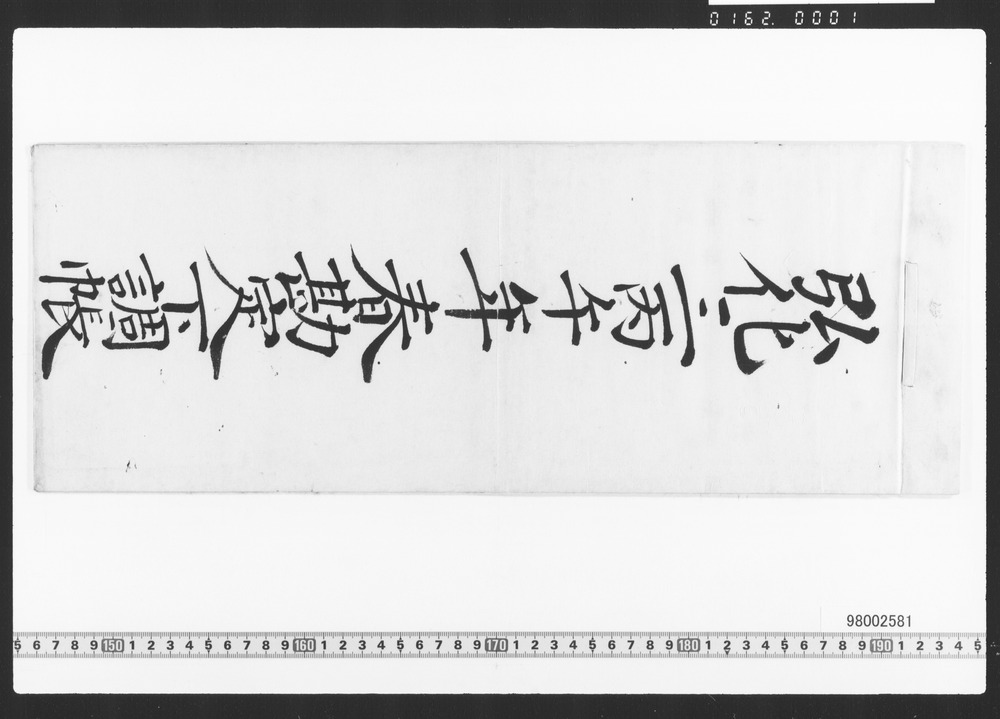 0162.0001
弘化三丙午年春勘定下調帳
98002581
5 6 7 8 9 150 1 2 3 4 5 6 7 8 9 160 1 2 3 4 5 6 7 8 9 170 1 2 3 4 5 6 7 8 9 180 1 2 3 4 5 6 7 8 9 190 1 2 3 4 5